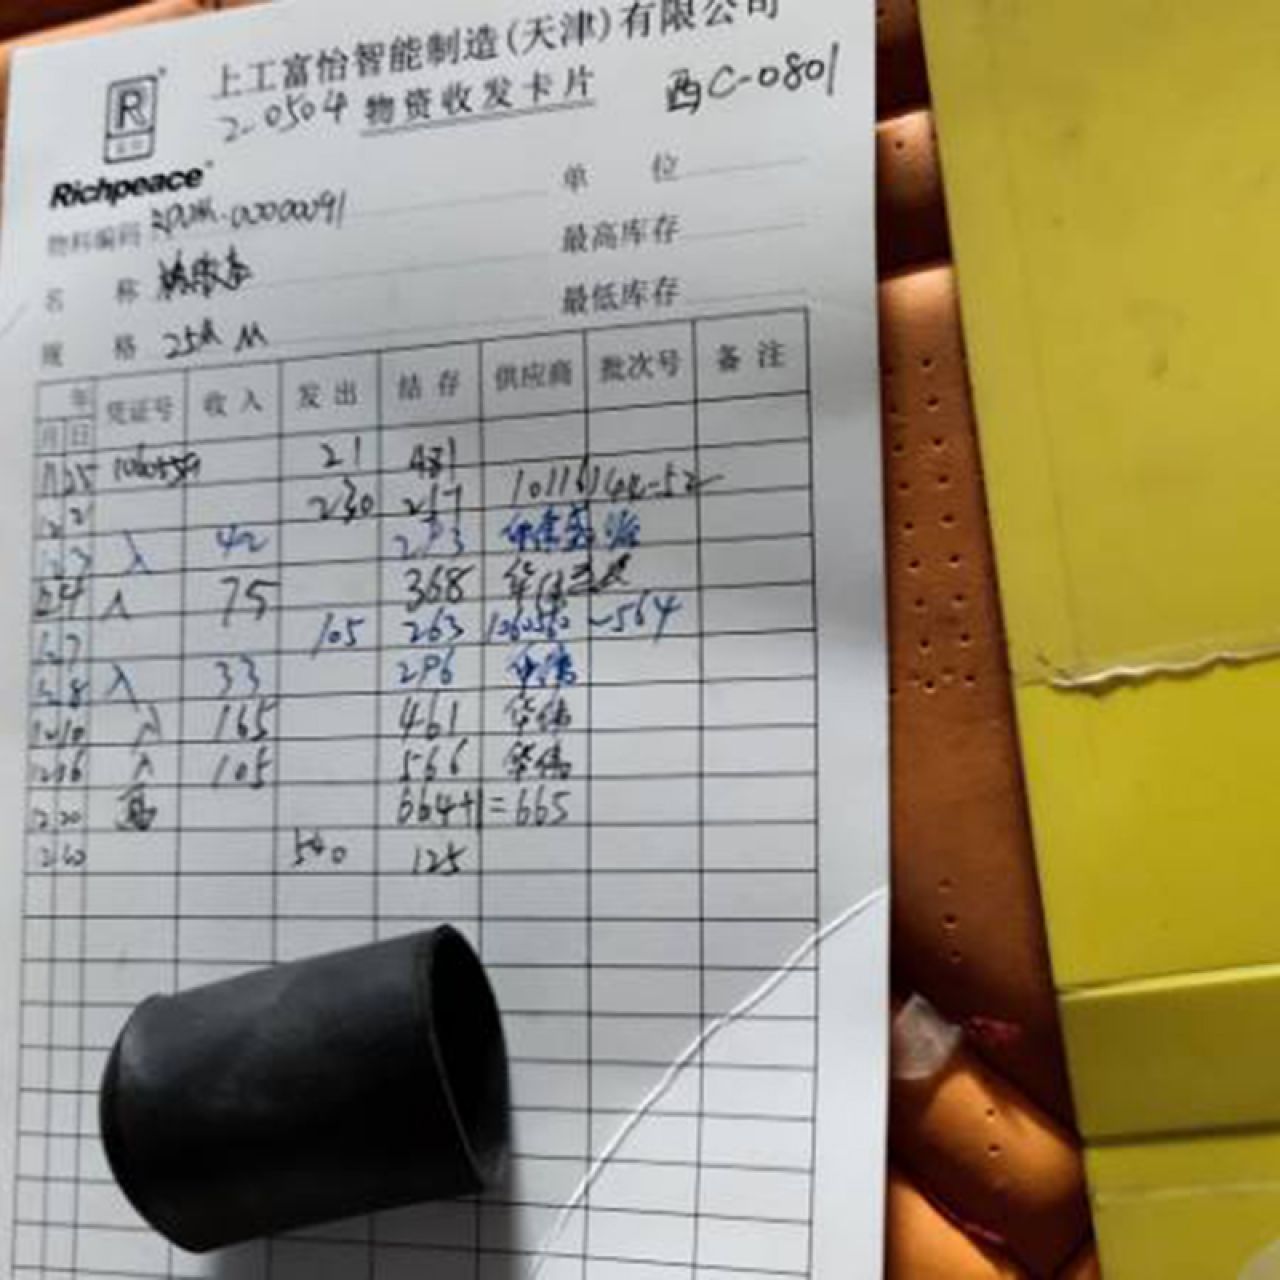 上工富怡智能制造(天津)有限公司
R
2-0504 物资收发卡片 西C-0801
Richpeace
物料编码 00000091 单 位
名 称 最高库存
规 格 25 M 最低库存
年 凭证号 收入 发出 结存 供应商 批次号 备注
月 日
11 25 21 481
12 2 230 10116144-52
12 3 入 42 293
12 4 入 75 368 华伟
12 7 105 263 1060560 -564
12 8 入 33 296 华伟
12 10 入 165 461 华伟
12 16 入 105 566 华伟
12 20 664+1=665
540 125